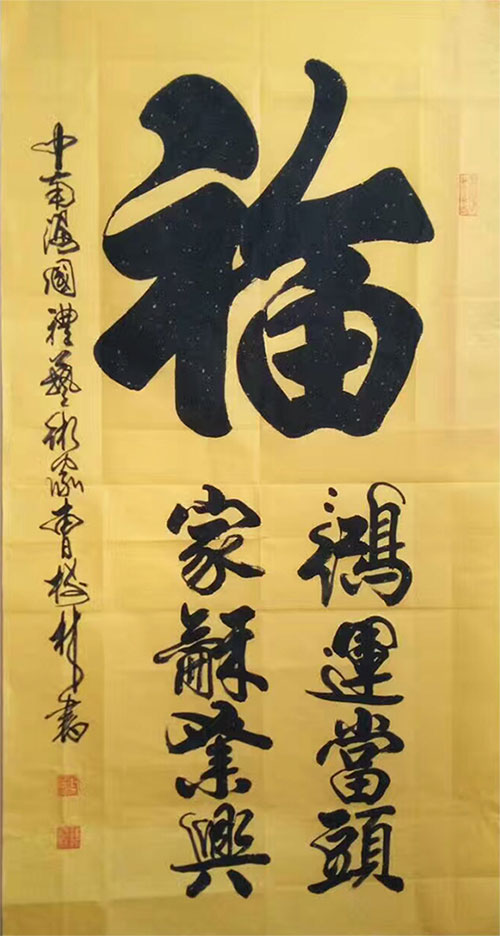 福
鴻運當頭
家龢業興
中南海國禮藝術家曹樹林書